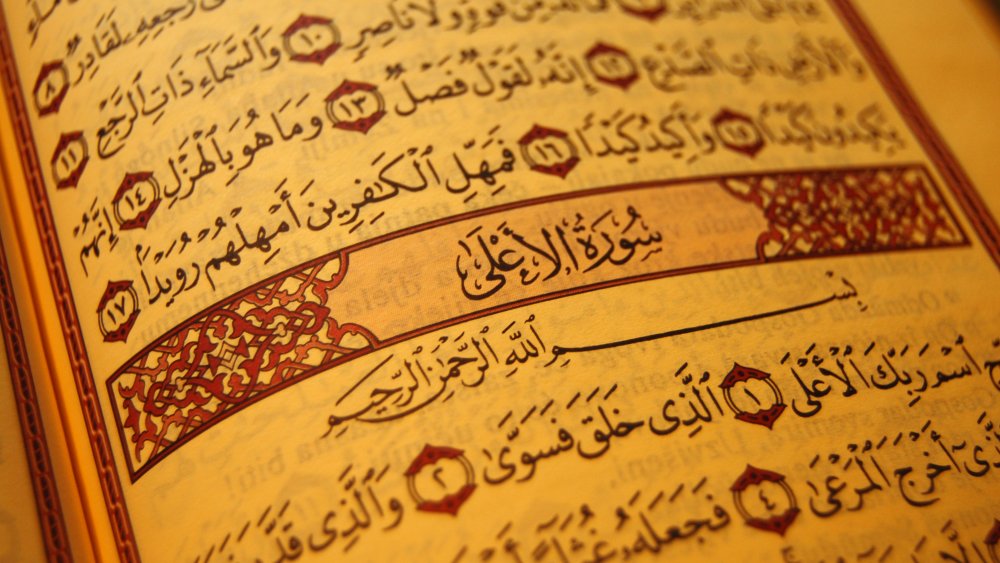 رَجْعِهِۦ لَقَادِرٌ ٨
قُوَّةٍ وَلَا نَاصِرٍ ١٠ وَٱلسَّمَآءِ ذَاتِ ٱلرَّجْعِ ١١
وَٱلْأَرْضِ ذَاتِ ٱلصَّدْعِ ١٢ إِنَّهُۥ لَقَوْلٌ فَصْلٌ ١٣ وَمَا هُوَ بِٱلْهَزْلِ ١٤ إِنَّهُمْ
يَكِيدُونَ كَيْدًا ١٥ وَأَكِيدُ كَيْدًا ١٦ فَمَهِّلِ ٱلْكَٰفِرِينَ أَمْهِلْهُمْ رُوَيْدًۢا ١٧
سُورَةُ ٱلْأَعْلَىٰ
بِسْمِ ٱللَّهِ ٱلرَّحْمَٰنِ ٱلرَّحِيمِ
ٱسْمَ رَبِّكَ ٱلْأَعْلَى ١ ٱلَّذِى خَلَقَ فَسَوَّىٰ ٢ وَٱلَّذِى قَدَّرَ
أَخْرَجَ ٱلْمَرْعَىٰ ٤ فَجَعَلَهُۥ غُثَآءً